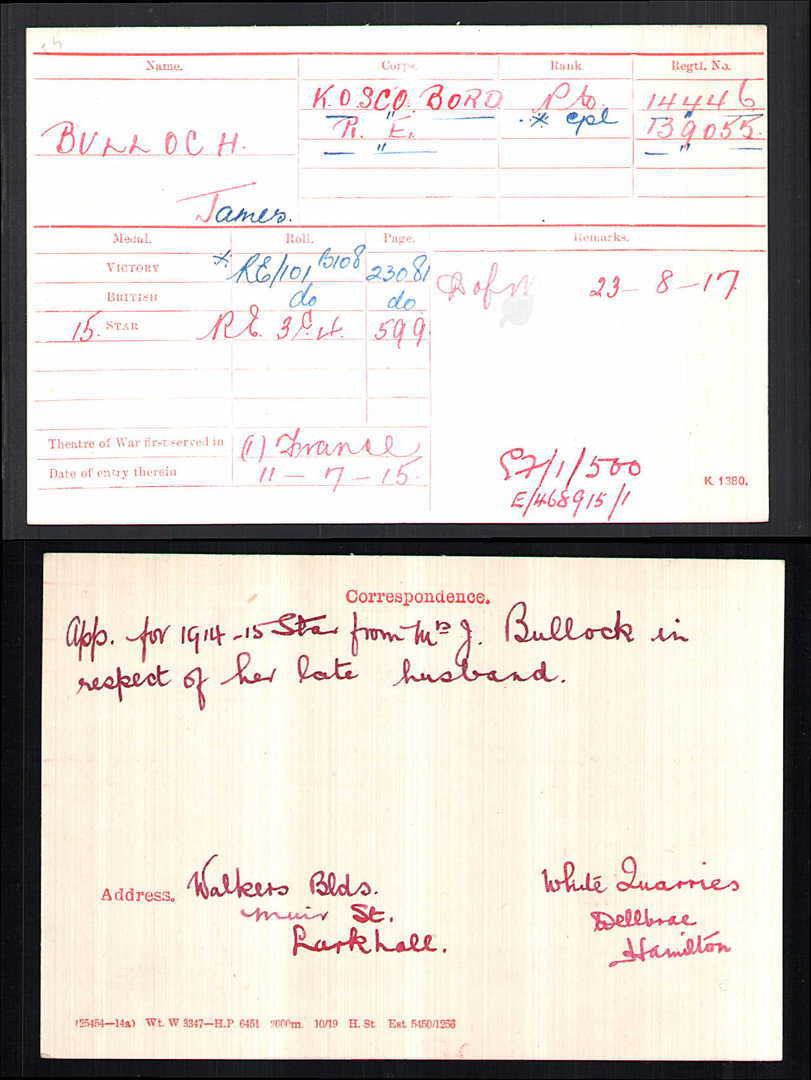 Name. Corps. Rank Regtl. No.
K.O.SCO. BORD Pte. 14446
BULLOCH. R. E. * Cpl 139055.
" "
James.
Medal. Roll. Page. Remarks.
VICTORY * RE/101 B108 23081 D of W 23-8-17
BRITISH do do
15. STAR R.E. 599.
Theatre of War first served in (1) France
Date of entry therein 11-7-15.
E/1/500
E/468915/1
K. 1380.
Correspondence.
App. for 1914-15 Star from Mrs J. Bullock in
respect of her late husband.
Address. Walkers Blds. White Quarries
Muir St. Dellbrae
Larkhall. Hamilton
(25454—14a) Wt. W 3347—H.P. 6451 2000m. 10/19 H. St Est 5450/1256